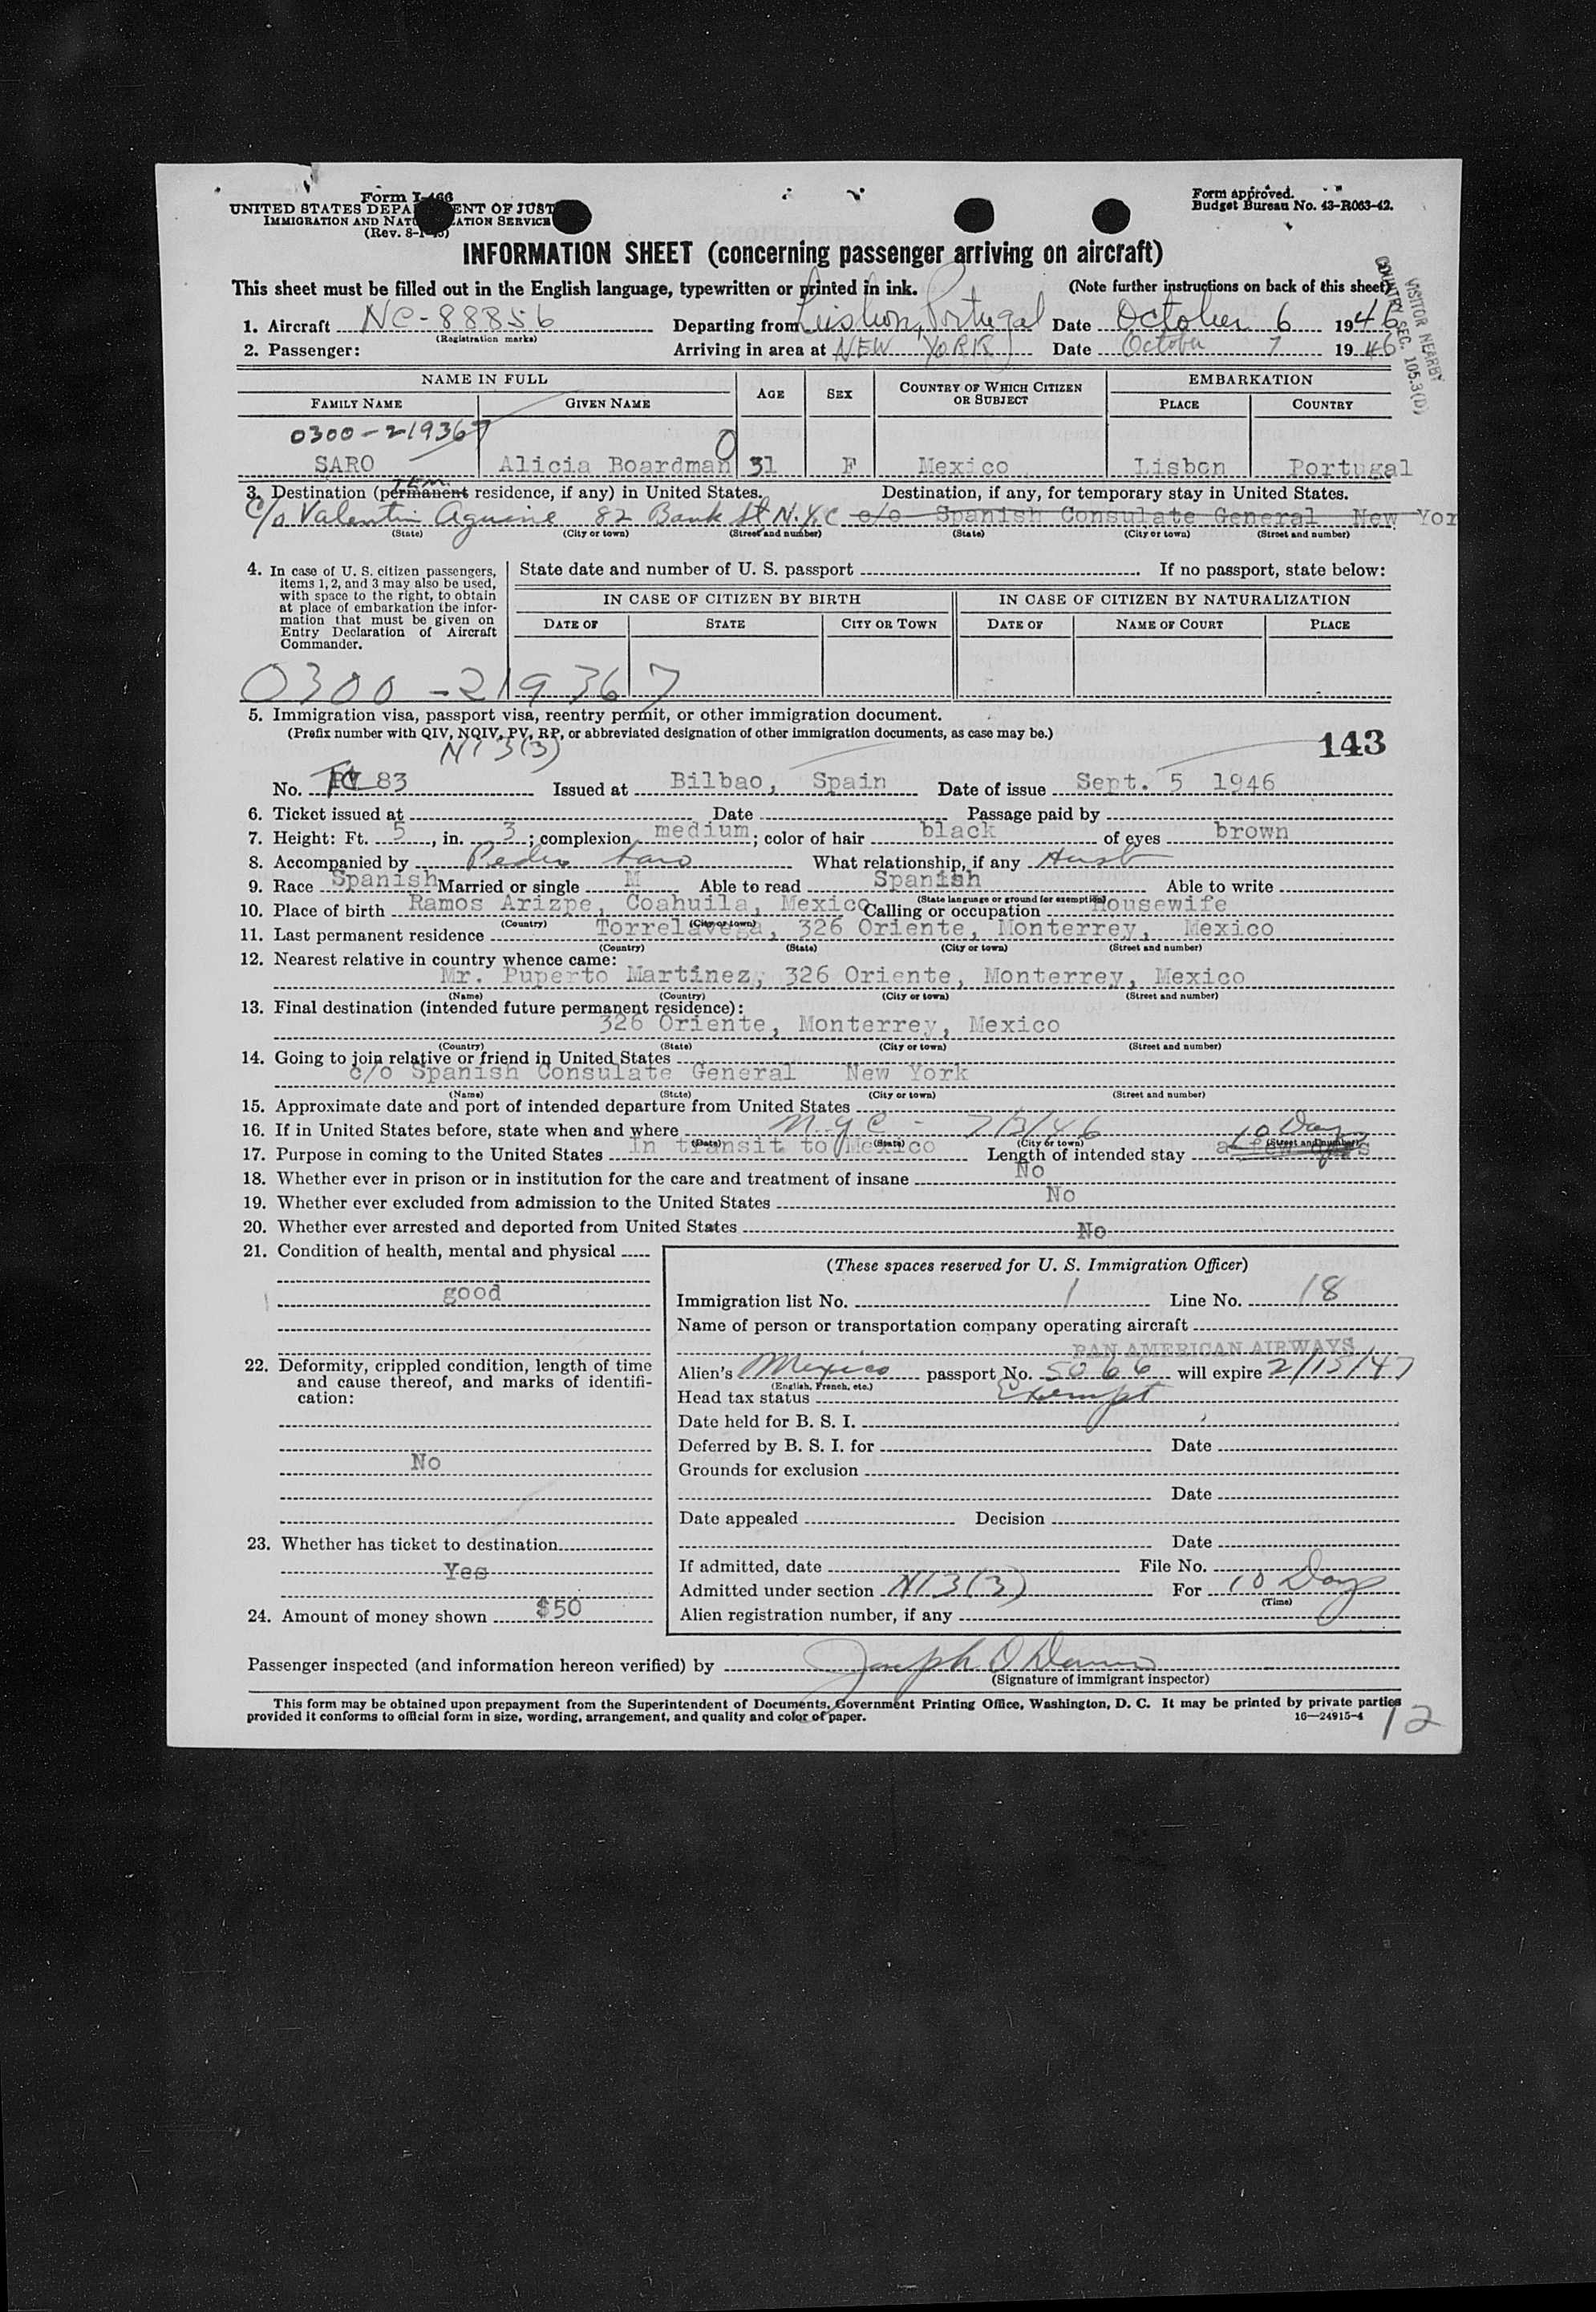 Form I-466
UNITED STATES DEPA ENT OF JUST
IMMIGRATION AND NATU ATION SERVICE
(Rev. 8-1-45)
Form approved.
Budget Bureau No. 43-R063-42.
INFORMATION SHEET (concerning passenger arriving on aircraft)
This sheet must be filled out in the English language, typewritten or printed in ink. (Note further instructions on back of this sheet)
VISITOR NEARBY
COUNTRY SEC. 105.3(D)
1. Aircraft NC-88856 Departing from Lisbon, Portugal Date October 6 1946
(Registration marks)
2. Passenger: Arriving in area at NEW YORK Date October 7 1946
NAME IN FULL AGE SEX COUNTRY OF WHICH CITIZEN OR SUBJECT EMBARKATION
FAMILY NAME GIVEN NAME PLACE COUNTRY
0300-219367
0
SARO Alicia Boardman 31 F Mexico Lisbon Portugal
TEM
3. Destination (permanent residence, if any) in United States. Destination, if any, for temporary stay in United States.
c/o Valentin Aguirre 82 Bank St N.Y.C c/o Spanish Consulate General New Yor
(State) (City or town) (Street and number) (State) (City or town) (Street and number)
4. In case of U. S. citizen passengers, items 1, 2, and 3 may also be used, with space to the right, to obtain at place of embarkation the information that must be given on Entry Declaration of Aircraft Commander.
State date and number of U. S. passport If no passport, state below:
IN CASE OF CITIZEN BY BIRTH IN CASE OF CITIZEN BY NATURALIZATION
DATE OF STATE CITY OR TOWN DATE OF NAME OF COURT PLACE
0300-219367
5. Immigration visa, passport visa, reentry permit, or other immigration document.
(Prefix number with QIV, NQIV, PV, RP, or abbreviated designation of other immigration documents, as case may be.)
N13(3)
143
No. 83 Issued at Bilbao, Spain Date of issue Sept. 5 1946
6. Ticket issued at Date Passage paid by
7. Height: Ft. 5, in. 3; complexion medium; color of hair black of eyes brown
8. Accompanied by Pedro Saro What relationship, if any Husb
9. Race Spanish Married or single M Able to read Spanish Able to write
(State language or ground for exemption)
10. Place of birth Ramos Arizpe, Coahuila, Mexico Calling or occupation Housewife
(Country) (City or town)
11. Last permanent residence Torrelavega, 326 Oriente, Monterrey, Mexico
(Country) (State) (City or town) (Street and number)
12. Nearest relative in country whence came:
Mr. Puperto Martinez, 326 Oriente, Monterrey, Mexico
(Name) (Country) (City or town) (Street and number)
13. Final destination (intended future permanent residence):
326 Oriente, Monterrey, Mexico
(Country) (State) (City or town) (Street and number)
14. Going to join relative or friend in United States
c/o Spanish Consulate General New York
(Name) (State) (City or town) (Street and number)
15. Approximate date and port of intended departure from United States
16. If in United States before, state when and where N.Y.C - 7/3/46
(Date) (State) (City or town) (Street and number)
10 Day
17. Purpose in coming to the United States In transit to Mexico Length of intended stay a few days
18. Whether ever in prison or in institution for the care and treatment of insane No
19. Whether ever excluded from admission to the United States No
20. Whether ever arrested and deported from United States No
21. Condition of health, mental and physical
good
22. Deformity, crippled condition, length of time and cause thereof, and marks of identification:
No
23. Whether has ticket to destination
Yes
24. Amount of money shown $50
(These spaces reserved for U. S. Immigration Officer)
Immigration list No. 1 Line No. 18
Name of person or transportation company operating aircraft
PAN AMERICAN AIRWAYS
Alien's Mexico passport No. 5066 will expire 2/15/47
(English, French, etc.)
Head tax status Exempt
Date held for B. S. I.
Deferred by B. S. I. for Date
Grounds for exclusion
Date
Date appealed Decision
Date
If admitted, date File No.
Admitted under section N13(3) For 10 Day
(Time)
Alien registration number, if any
Passenger inspected (and information hereon verified) by Joseph O
(Signature of immigrant inspector)
This form may be obtained upon prepayment from the Superintendent of Documents, Government Printing Office, Washington, D. C. It may be printed by private parties
provided it conforms to official form in size, wording, arrangement, and quality and color of paper. 16—24915-4
12